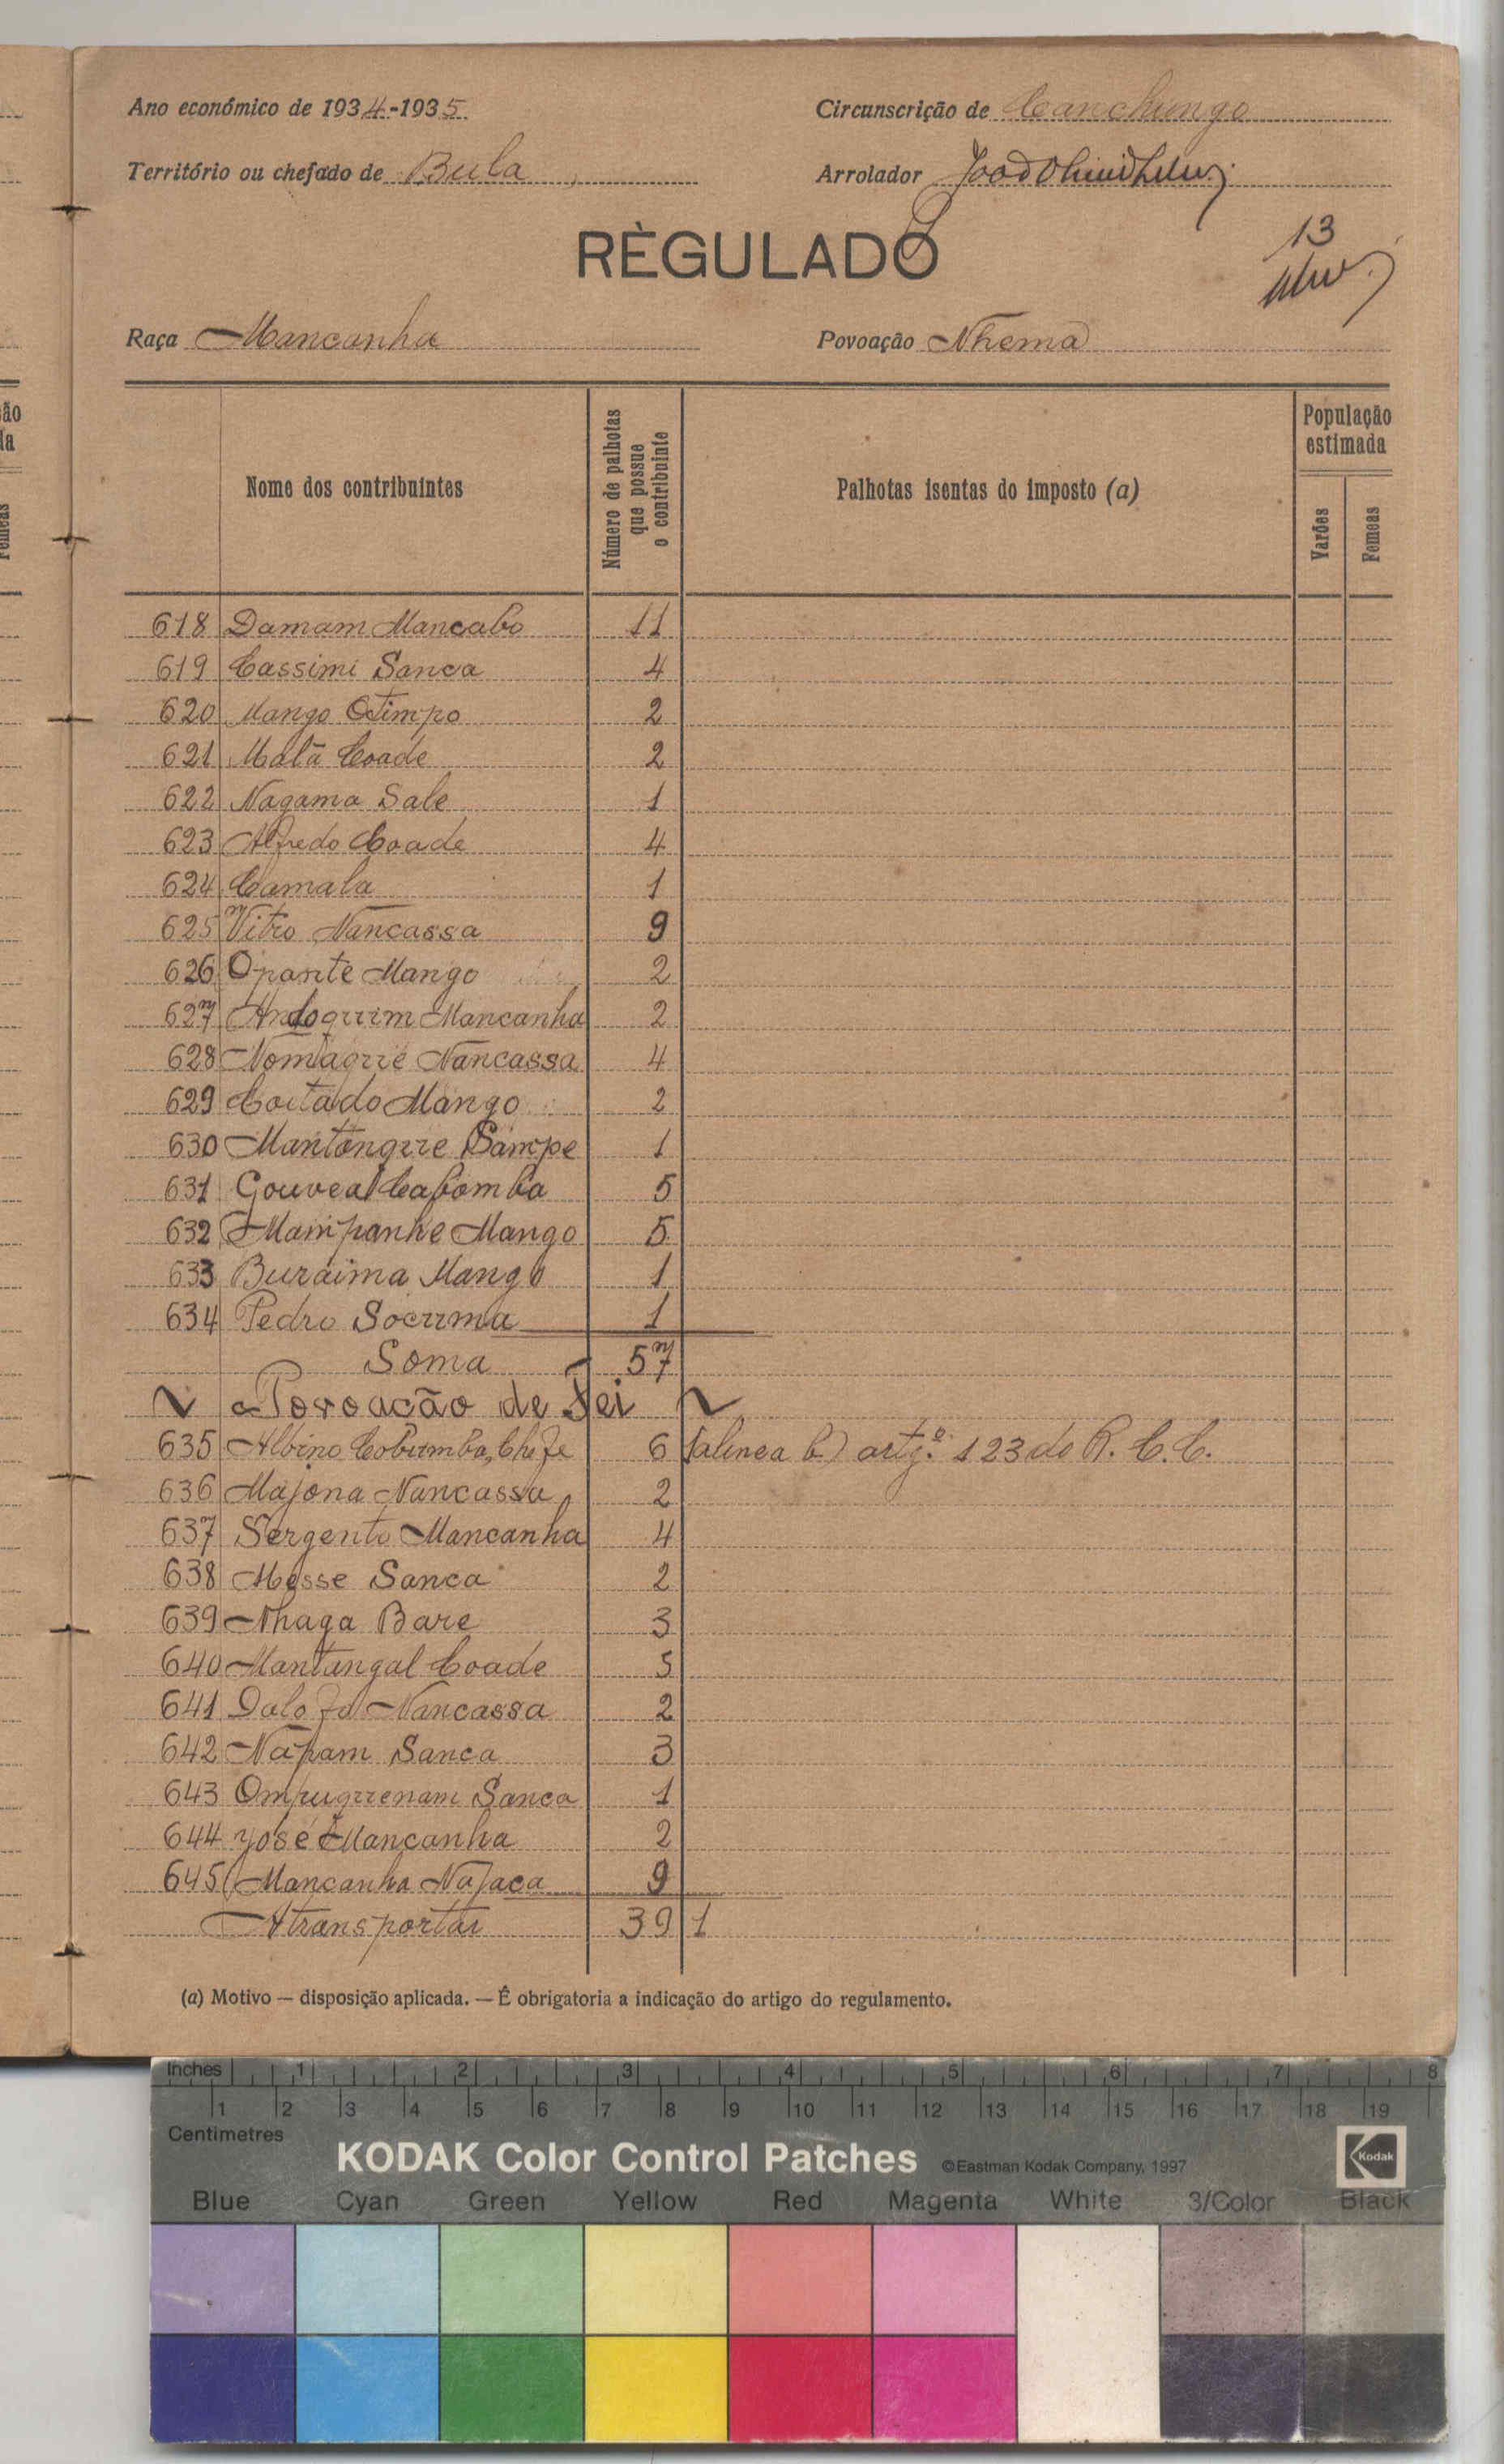 Ano económico de 1934-1935
Circunscrição de Canchungo
Território ou chefado de Bula
Arrolador
RÈGULADO
13
Raça Mancanha
Povoação Nhema
Nome dos contribuintes
Número de palhotas que possue o contribuinte
Palhotas isentas do imposto (a)
População estimada
Varões
Femeas
618 Damam Mancabo 11
619 Cassimi Sanca 4
620 Mango Otimpo 2
621 Malã Coade 2
622 Nagama Sale 1
623 Alfredo Coade 4
624 Camala 1
625 Vitro Nancassa 9
626 Opante Mango 2
627 Andoquim Mancanha 2
628 Nomaque Nancassa 4
629 Coitado Mango 2
630 Mantongue Sampe 1
631 Gouvea Cabomba 5
632 Mampanhe Mango 5
633 Buraima Mango 1
634 Pedro Socuma 1
Soma 57
Povoação de Fei
635 Albino Cobumba, Chefe 6 (alinea b) artgº. 123 do R. C. C.
636 Majona Nancassa 2
637 Sergento Mancanha 4
638 Messe Sanca 2
639 Nhaga Bare 3
640 Mantangal Coade 5
641 Dalofa Nancassa 2
642 Napam Sanca 3
643 Ompuguenam Sanca 1
644 José Mancanha 2
645 Mancanha Najaca 9
A transportar 39 1
(a) Motivo — disposição aplicada. — É obrigatoria a indicação do artigo do regulamento.
Inches 1 2 3 4 5 6 7 8
1 2 3 4 5 6 7 8 9 10 11 12 13 14 15 16 17 18 19
Centimetres
KODAK Color Control Patches ©Eastman Kodak Company, 1997 Kodak
Blue Cyan Green Yellow Red Magenta White 3/Color Black